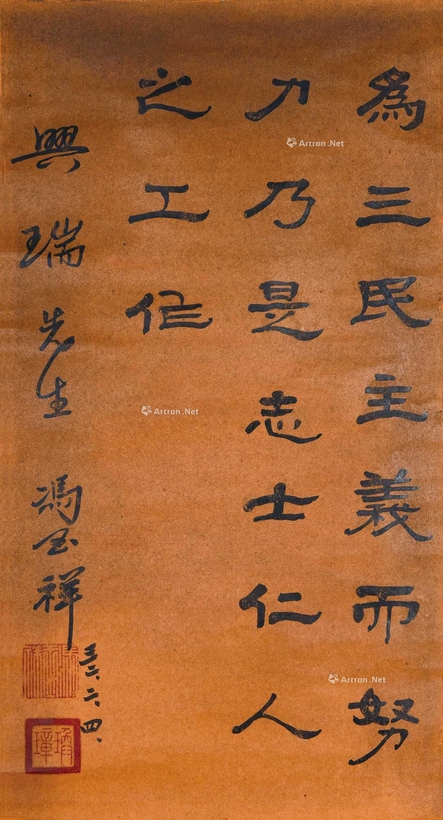 為三民主義而努
力乃是志士仁人
之工作
興瑞先生 馮玉祥
三二、二、四、
Artron.Net
Artron.Net
Artron.Net